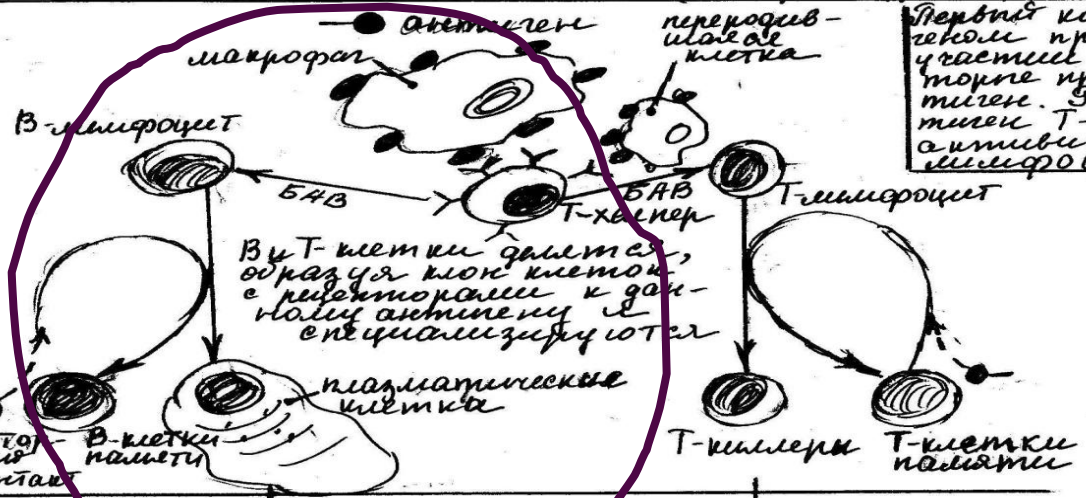 антиген
макрофаг
переродив-
шаяся
клетка
Первый
геном
участии
тиген.
тиген Т-
В-лимфоцит
БАВ
БАВ
Т-хелпер
Т-лимфоцит
В и Т-клетки делятся,
образуя клон клеток
с рецепторами к дан-
ному антигену и
специализируются
плазматические
клетка
В-клетки
памяти
Т-киллеры
Т-клетки
памяти